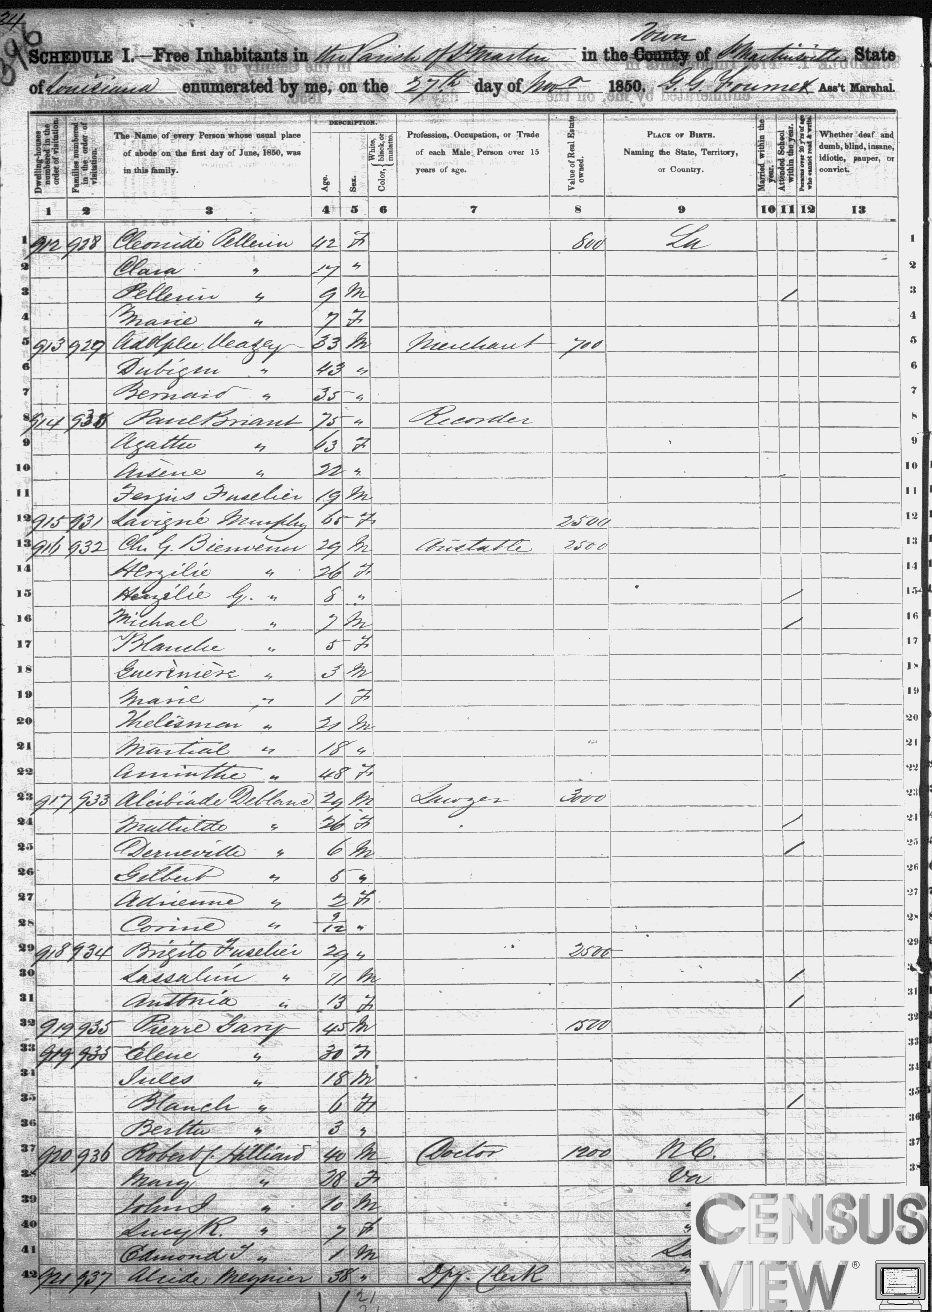 24
396
SCHEDULE I.—Free Inhabitants in the Parish of St Martin in the County Town of St Martinville State
of Louisiana enumerated by me, on the 27th day of Novr 1850. G. G. Fournet Ass't Marshal.
Dwelling-houses numbered in the order of visitation.
Families numbered in the order of visitation.
The Name of every Person whose usual place of abode on the first day of June, 1850, was in this family.
DESCRIPTION.
Age.
Sex.
Color, { White, black, or mulatto.
Profession, Occupation, or Trade of each Male Person over 15 years of age.
Value of Real Estate owned.
PLACE OF BIRTH. Naming the State, Territory, or Country.
Married within the year.
Attended School within the year.
Persons over 20 y'rs of age who cannot read & write.
Whether deaf and dumb, blind, insane, idiotic, pauper, or convict.
1 2 3 4 5 6 7 8 9 10 11 12 13
1 912 928 Cleonide Pellerin 42 F 800 La 1
2 Clara " 17 " 2
3 Pellerin " 9 M / 3
4 Marie " 7 F 4
5 913 929 Adolphe Veazey 33 M Merchant 700 5
6 Dubigny " 43 " 6
7 Bernard " 35 " 7
8 914 930 Paul Briant 75 " Recorder 8
9 Agathe " 63 F 9
10 Arsène " 22 " 10
11 Fergus Fuselier 19 M 11
12 915 931 Lavigné Murphy 65 F 2500 12
13 916 932 Chs G. Bienvenu 29 M Constable 2500 13
14 Herzilie " 26 F 14
15 Herzélie G. " 8 " / 15
16 Michael " 7 M / 16
17 Blanche " 5 F 17
18 Guérinière " 3 M 18
19 Marie " 1 F 19
20 Thelismar " 21 M 20
21 Martial " 18 " 21
22 Aminthe " 48 F 22
23 917 933 Alcibiade Deblanc 29 M Lawyer 3000 23
24 Mathilde " 26 F / 24
25 Derneville " 6 M / 25
26 Gilbert " 5 " 26
27 Adrienne " 2 F 27
28 Corine " 9/12 " 28
29 918 934 Brigite Fuselier 29 " 2500 29
30 Lassalin " 11 M / 30
31 Antonia " 13 F / 31
32 919 935 Pierre Gary 45 M 1500 32
33 919 935 Celene " 30 F 33
34 Jules " 18 M 34
35 Blanch " 6 F / 35
36 Bertha " 3 " 36
37 920 936 Robert C. Hilliard 40 M Doctor 1200 N.C. 37
38 Mary " 28 F Va 38
39 John J. " 10 M "
40 Lucy R. " 7 F "
41 Edmond T. " 1 M La
42 921 937 Alcide Meynier 38 " Dpy. Clerk "
CENSUS
VIEW®